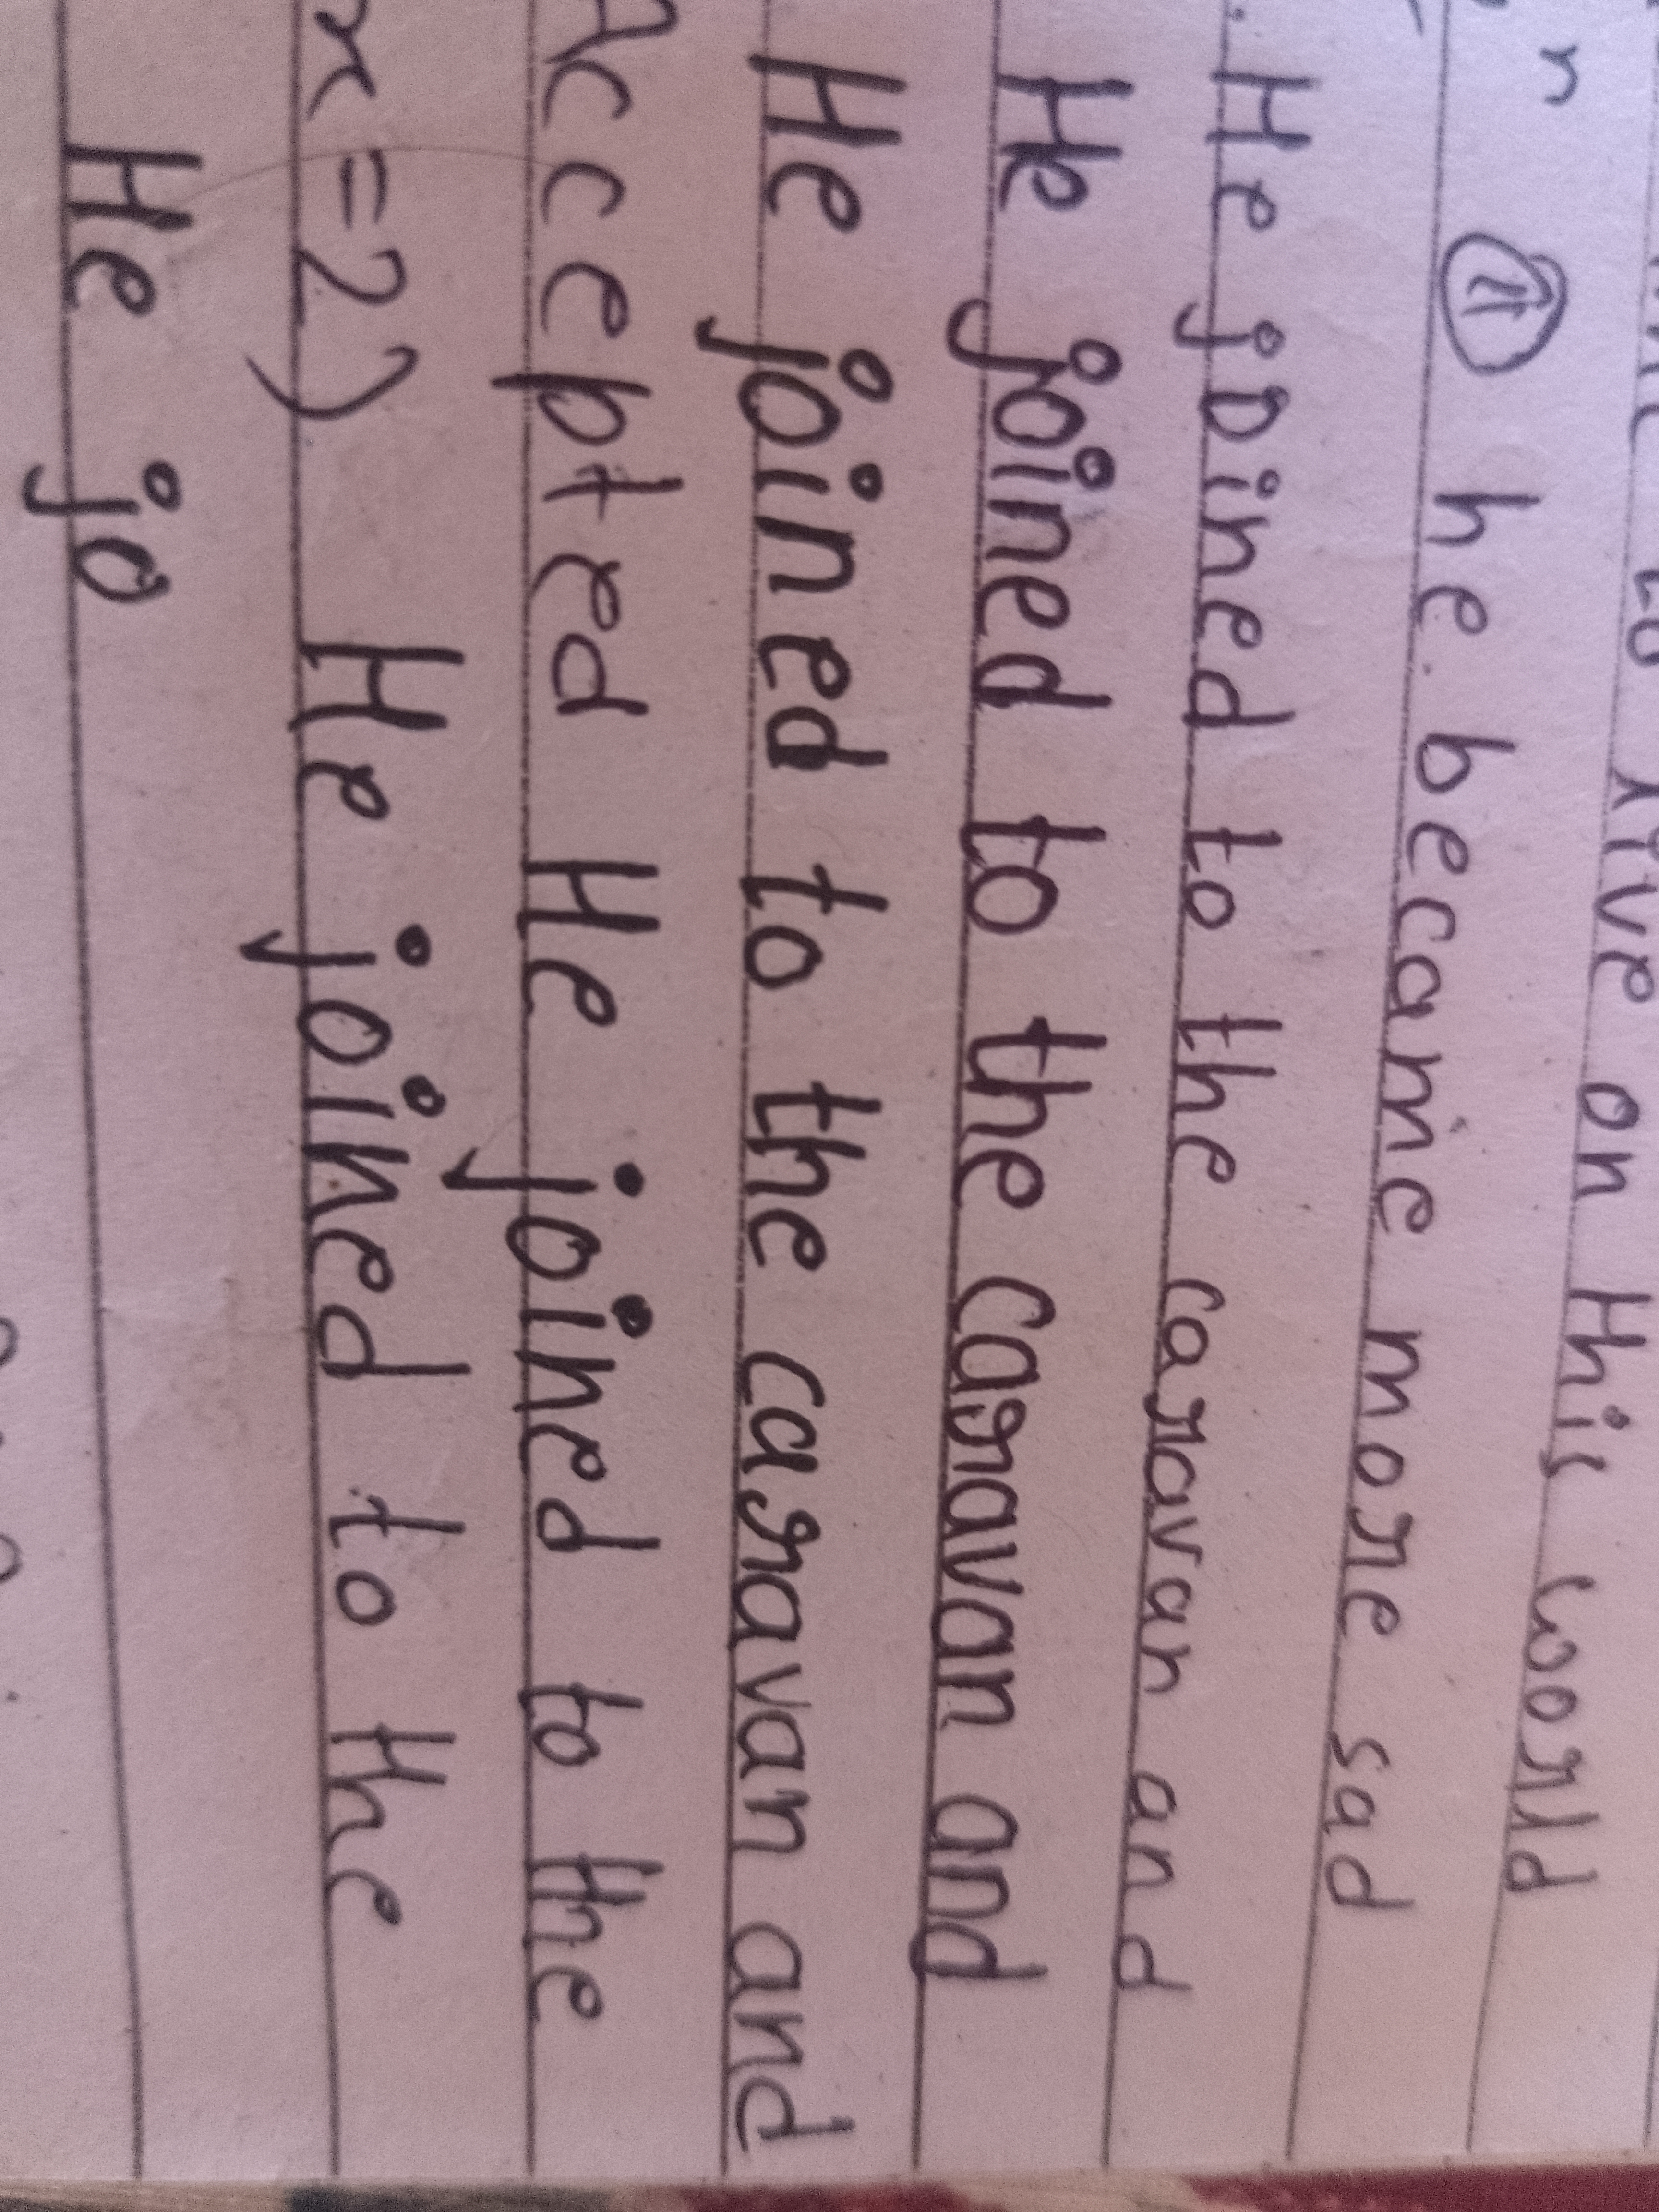 to live on this world
n ① he became more sad
He joined to the caravan and
He joined to the caravan and
He joined to the caravan and
Accepted He joined to the
x=2) He joined to the
He jo